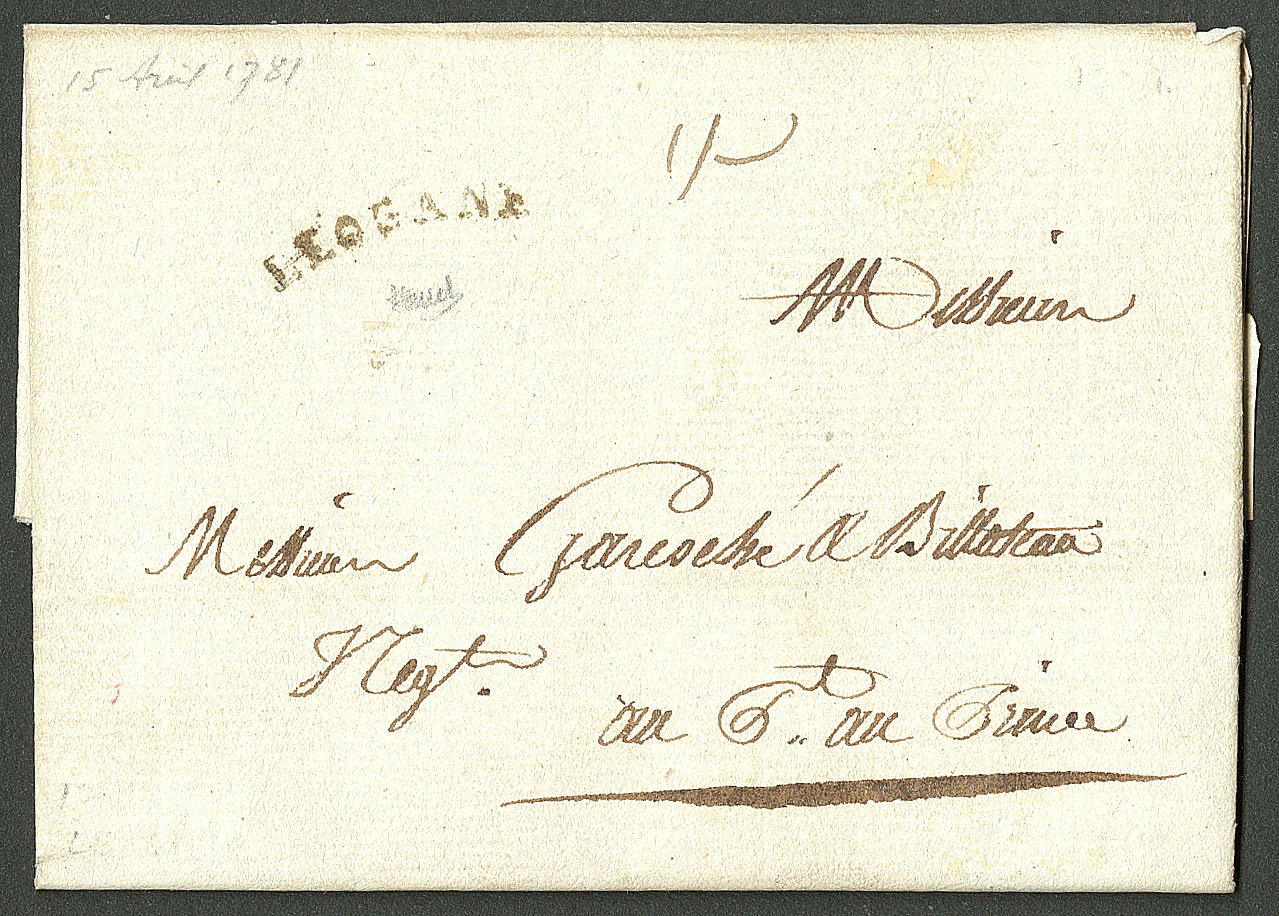 15 Avril 1781
LEOGANE
Messieurs
Messieurs Garesché & Billoteau
Negts.
au Pt. au Prince